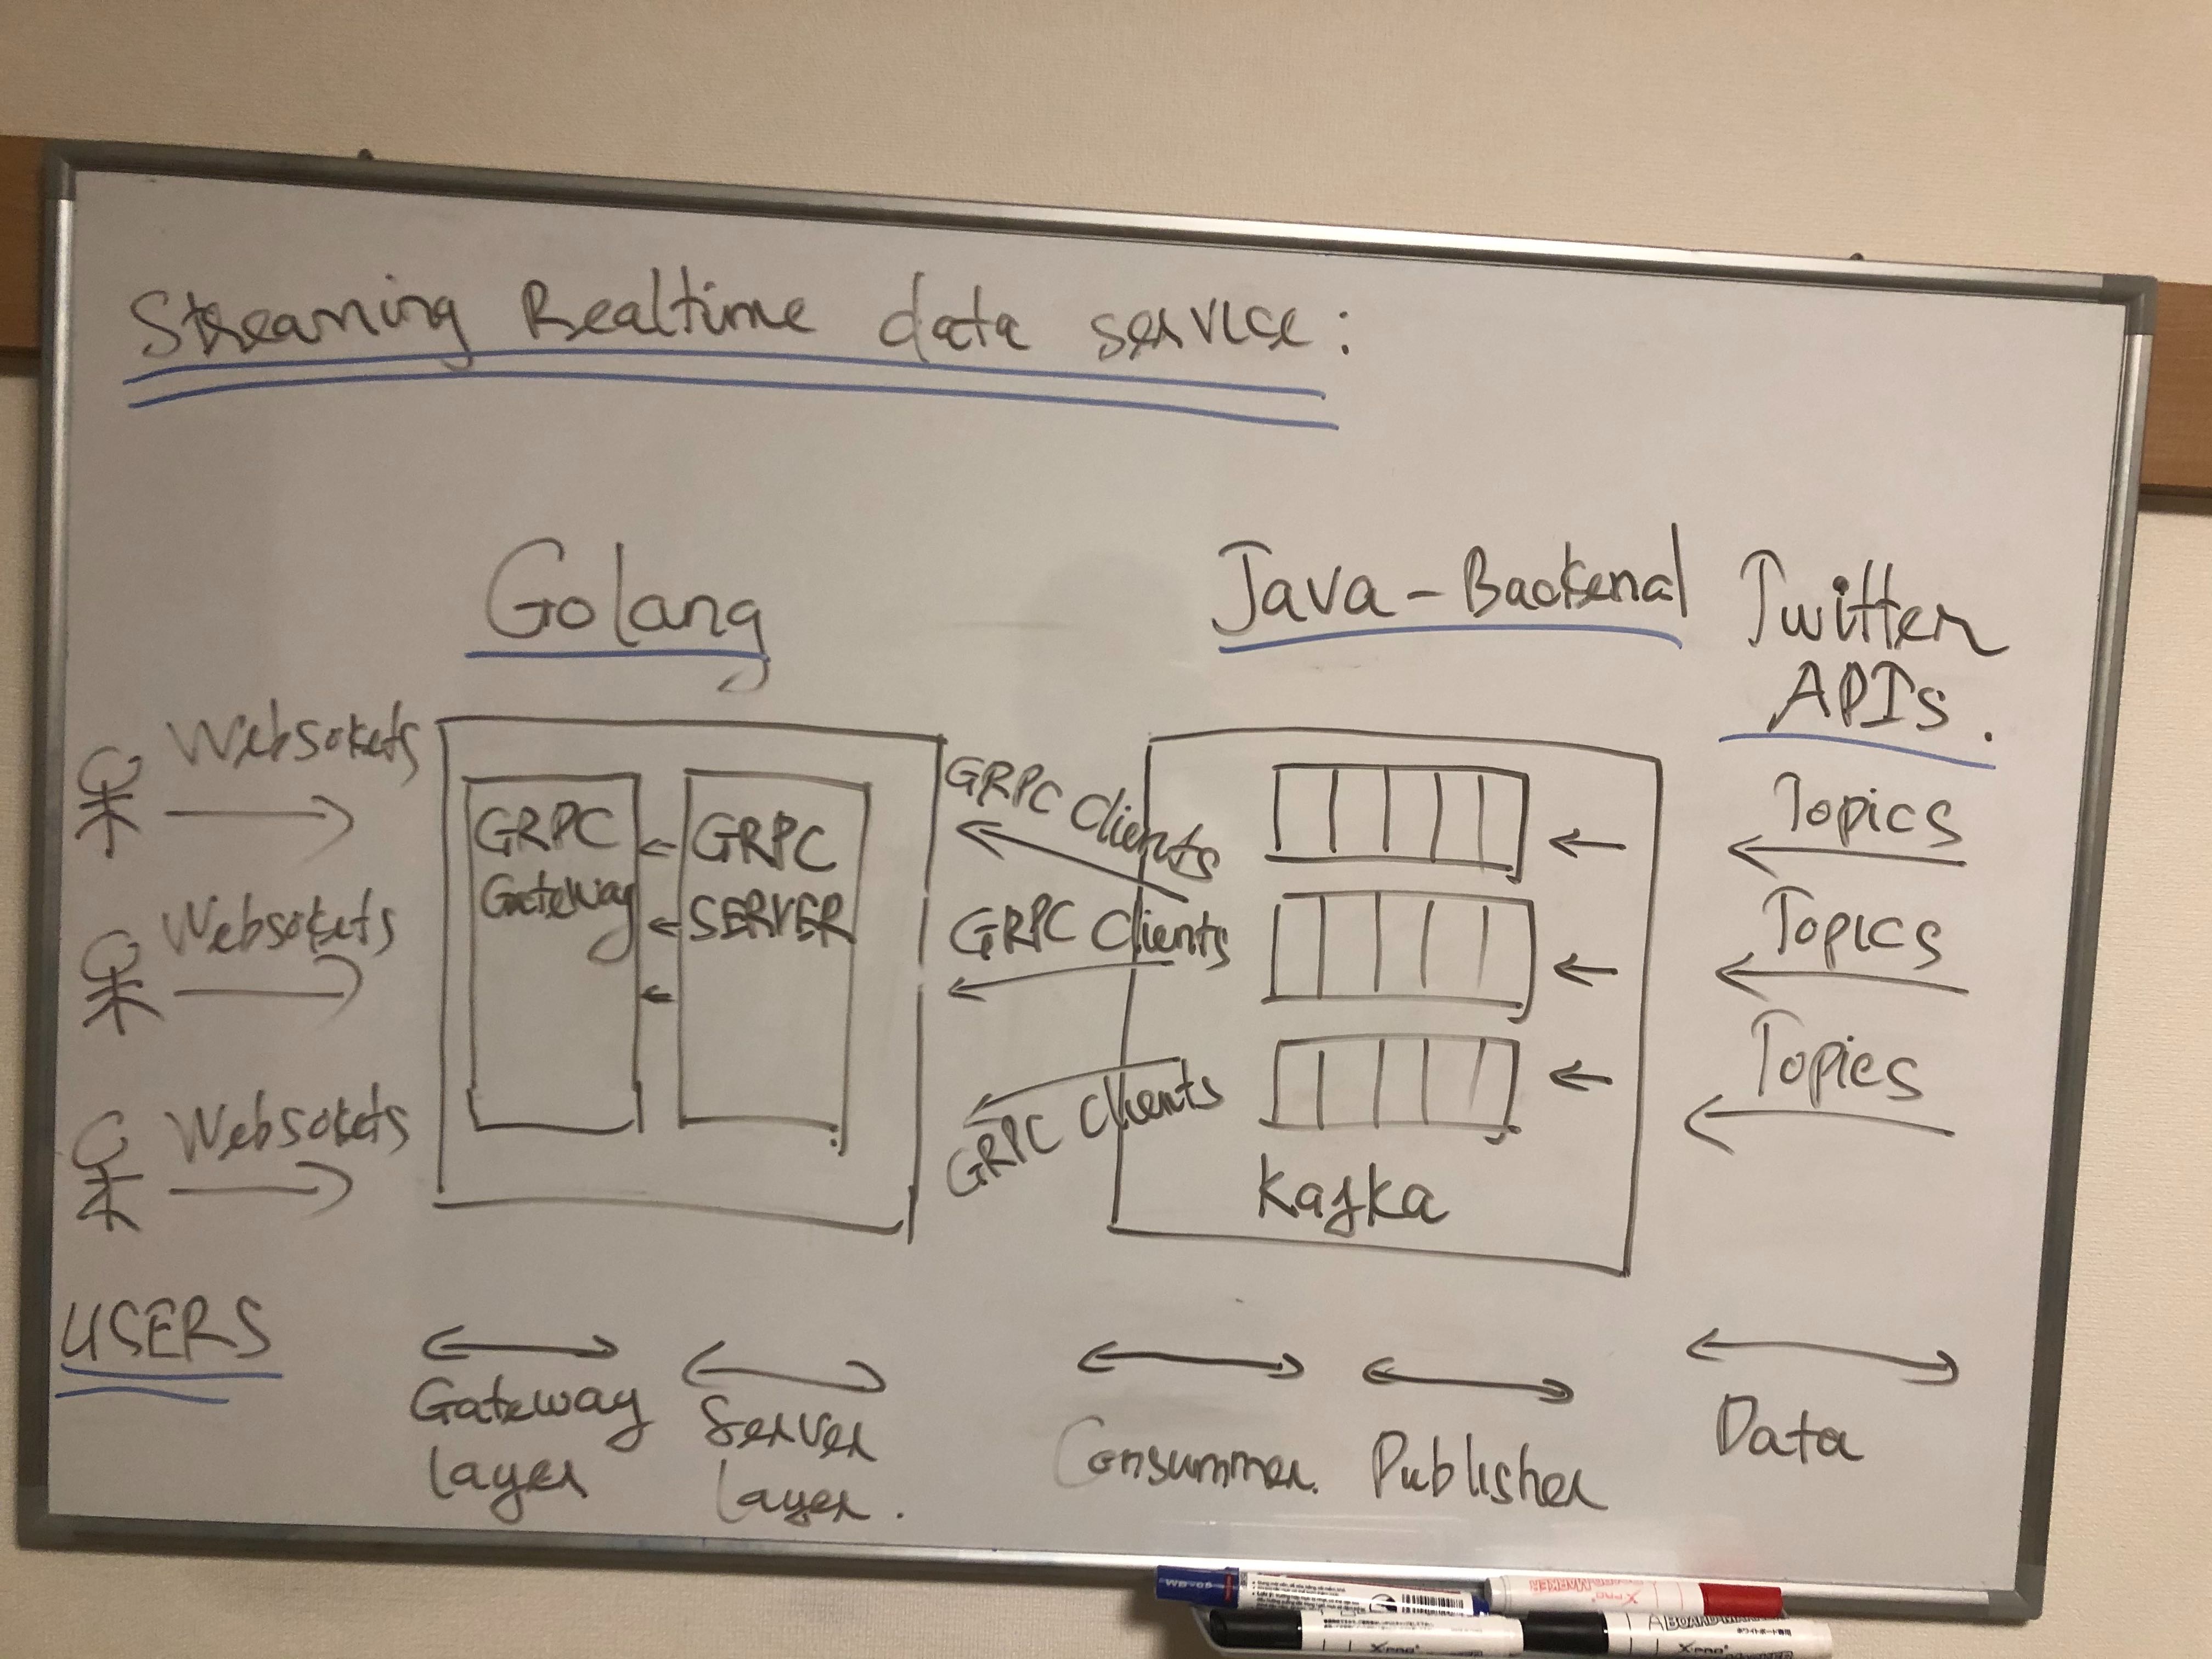 Streaming Realtime data service:
Golang
Java-Backend
Twitter
APIs.
Websokets
Websokets
Websokets
GRPC
Gateway
GRPC
SERVER
GRPC Clients
GRPC Clients
GRPC Clients
Topics
Topics
Topics
Kafka
USERS
Gateway
layer
Server
layer.
Consummer.
Publisher
Data
WB-05
X-PRO
BOARD MARKER
X-PRO